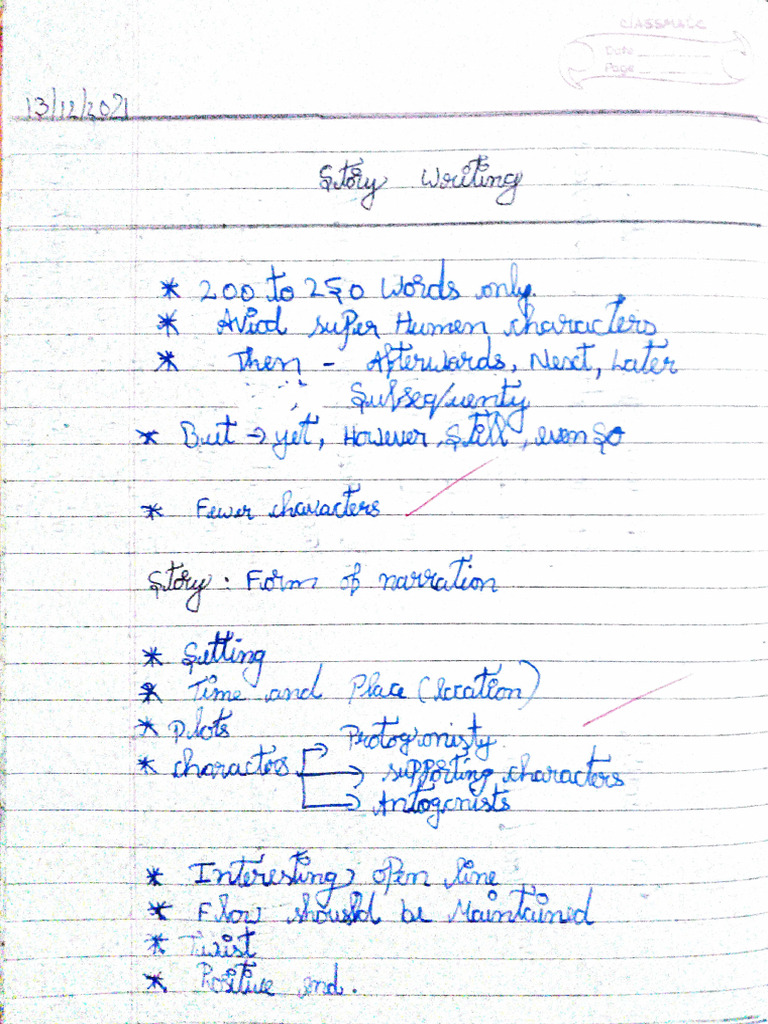 CLASSMATE
Date
Page
13/12/2021
Story Writing
* 200 to 250 Words only.
* Aviod super Humen characters
* Then - Afterwards, Next, Later
Subsequenty
* But → yet, However, Still, even so
* Fewer characters
Story : Form of narration
* Setting
* Time and Place (location)
* Plots
Protogronisty
* charactors → supporting characters
→ Antogonists
* Interesting open line
* Flow should be Maintained
* Twist
* Positive end.